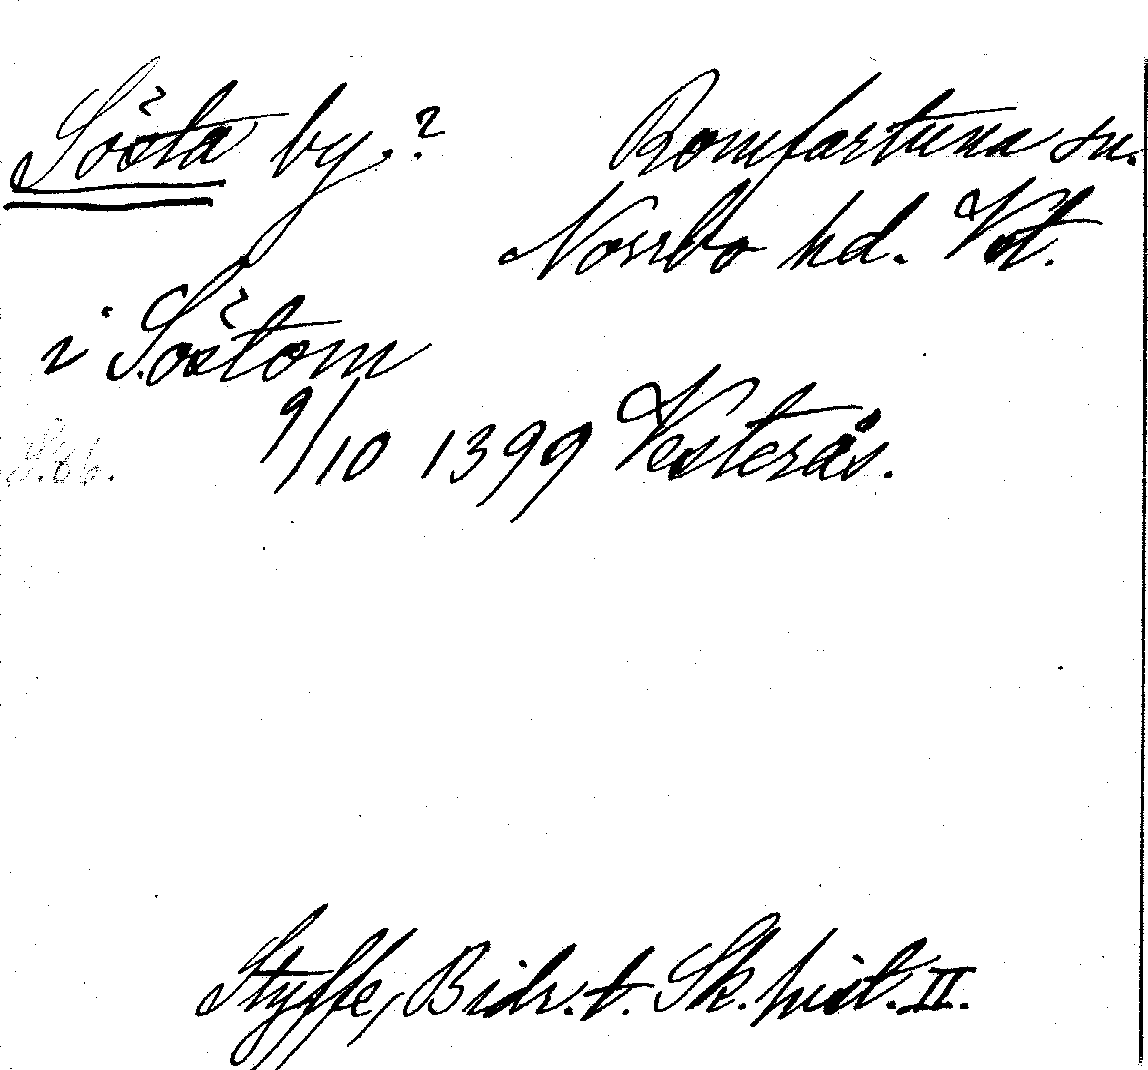 Sösta by.? Romfartuna sn.
Norrbo hd. Vstm.
i Söstom
S. 86. 9/10 1399 Vesterås.
Styffe, Bidr. t. Sk. hist. II.